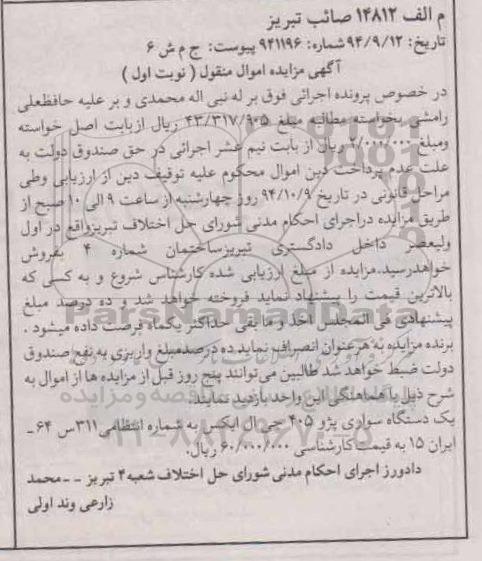 م الف ۱۴۸۱۲ صائب تبریز
تاریخ: ۹۴/۹/۱۲ شماره: ۹۴۱۱۹۶ پیوست: ج م ش ۶
آگهی مزایده اموال منقول ( نوبت اول )
در خصوص پرونده اجرائی فوق بر له نبی اله محمدی و بر علیه حافظعلی
رامشی بخواسته مطالبه مبلغ ۴۳/۳۱۷/۹۰۵ ریال ازبابت اصل خواسته
ومبلغ ریال از بابت نیم عشر اجرائی در حق صندوق دولت به
علت عدم پرداخت دین اموال محکوم علیه توقیف دین از ارزیابی وطی
مراحل قانونی در تاریخ ۹۴/۱۰/۹ روز چهارشنبه از ساعت ۹ الی ۱۰ صبح از
طریق مزایده دراجرای احکام مدنی شورای حل اختلاف تبریزواقع در اول
ولیعصر داخل دادگستری تبریزساختمان شماره ۴ بفروش
خواهدرسید.مزایده از مبلغ ارزیابی شده کارشناس شروع و به کسی که
بالاترین قیمت را پیشنهاد نماید فروخته خواهد شد و ده درصد مبلغ
پیشنهادی فی المجلس اخذ و ما بقی حداکثر یکماه فرصت داده میشود .
برنده مزایده به هر عنوان انصراف نماید ده درصدمبلغ واریزی به نفع صندوق
دولت ضبط خواهد شد طالبین می‌توانند پنج روز قبل از مزایده ها از اموال به
شرح ذیل با هماهنگی این واحد بازدید نمایند
یک دستگاه سواری پژو ۴۰۵ جی ال ایکس به شماره انتظامی ۳۱۱س ۶۴ ـ
ایران ۱۵ به قیمت کارشناسی ۶۰/۰۰۰/۰۰۰ ریال.
دادورز اجرای احکام مدنی شورای حل اختلاف شعبه ۴ تبریز ــ محمد
زارعی وند اولی
ParsNamadData